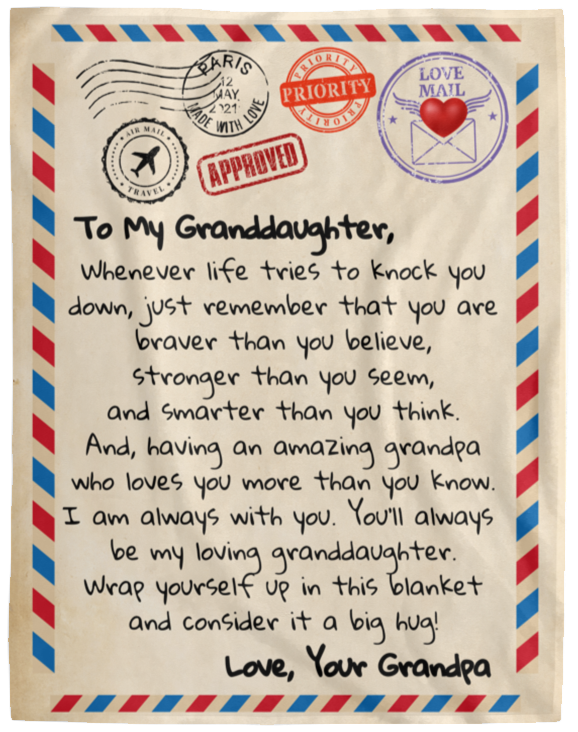 PARIS
12
MAY
2021
MADE WITH LOVE
PRIORITY
PRIORITY
PRIORITY
LOVE
MAIL
AIR MAIL
TRAVEL
APPROVED
To My Granddaughter,
Whenever life tries to knock you
down, just remember that you are
braver than you believe,
stronger than you seem,
and smarter than you think.
And, having an amazing grandpa
who loves you more than you know.
I am always with you. You'll always
be my loving granddaughter.
Wrap yourself up in this blanket
and consider it a big hug!
Love, Your Grandpa